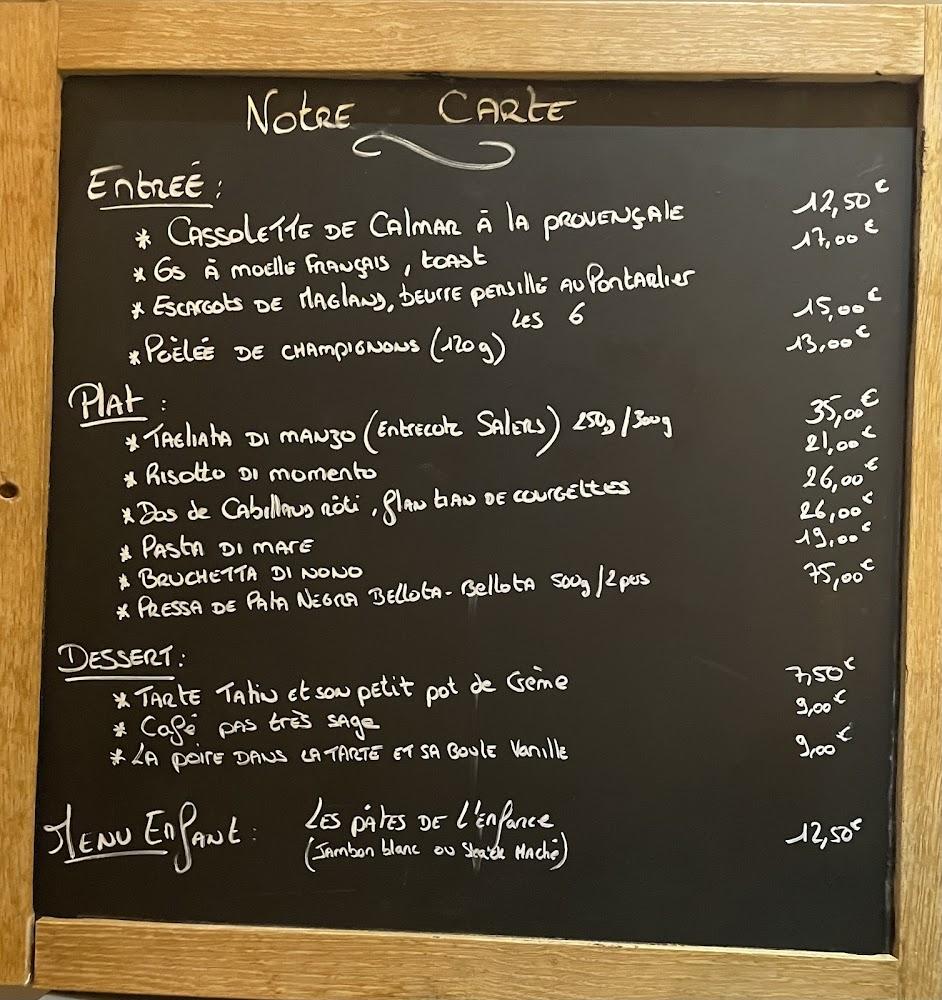 Notre Carte
Entreé :
* Cassolette de Calmar à la provençale 12,50€
* Os à moelle Français, toast 17,00€
* Escargots de Magland, beurre persillé au Pontarlier
Les 6 15,00€
* Poèlée de champignons (120g) 13,00€
Plat :
* Tagliata di manzo (Entrecote Salers) 250g/300g 35,00€
* Risotto di momento 21,00€
* Dos de Cabillaud rôti, flan tian de courgettes 26,00€
* Pasta di mare 26,00€
* Bruchetta di nono 19,00€
* Pressa de Pata Negra Bellota-Bellota 500g/2pers 75,00€
Dessert :
* Tarte Tatin et son petit pot de Crème 7,50€
* Café pas très sage 9,00€
* La poire dans la tarte et sa boule Vanille 9,00€
Menu Enfant : Les pâtes de l'enfance
(Jambon blanc ou Steack Haché) 12,50€